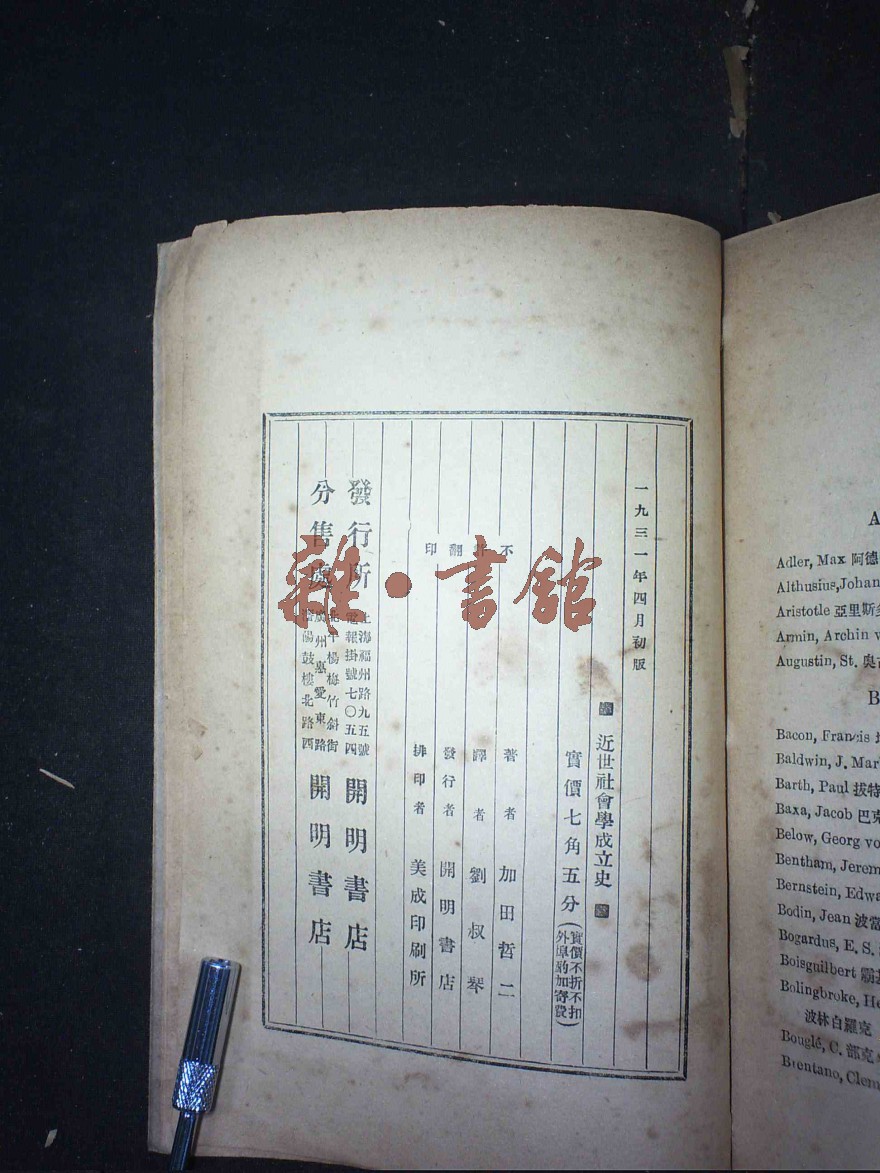 一九三一年四月初版
近世社會學成立史
實價七角五分
(實價不折不扣
外埠酌加寄費)
不許翻印
著者 加田哲二
譯者 劉叔琴
發行者 開明書店
排印者 美成印刷所
發行所
上海福州路九五號
電報掛號七〇五四
開明書店
分售處
北平楊梅竹斜街
廣州惠愛東路
瀋陽鼓樓北路西
開明書店
雜·書館
A
Adler, Max 阿德
Althusius, Johan
Aristotle 亞里斯多
Armin, Archin v
Augustin, St. 奧古
B
Bacon, Francis
Baldwin, J. Mar
Barth, Paul 拔特
Baxa, Jacob 巴克
Below, Georg vo
Bentham, Jerem
Bernstein, Edwa
Bodin, Jean 波當
Bogardus, E. S.
Boisguilbert
Bolingbroke, He
波林白羅克
Bouglé, C. 部克
Brentano, Clem